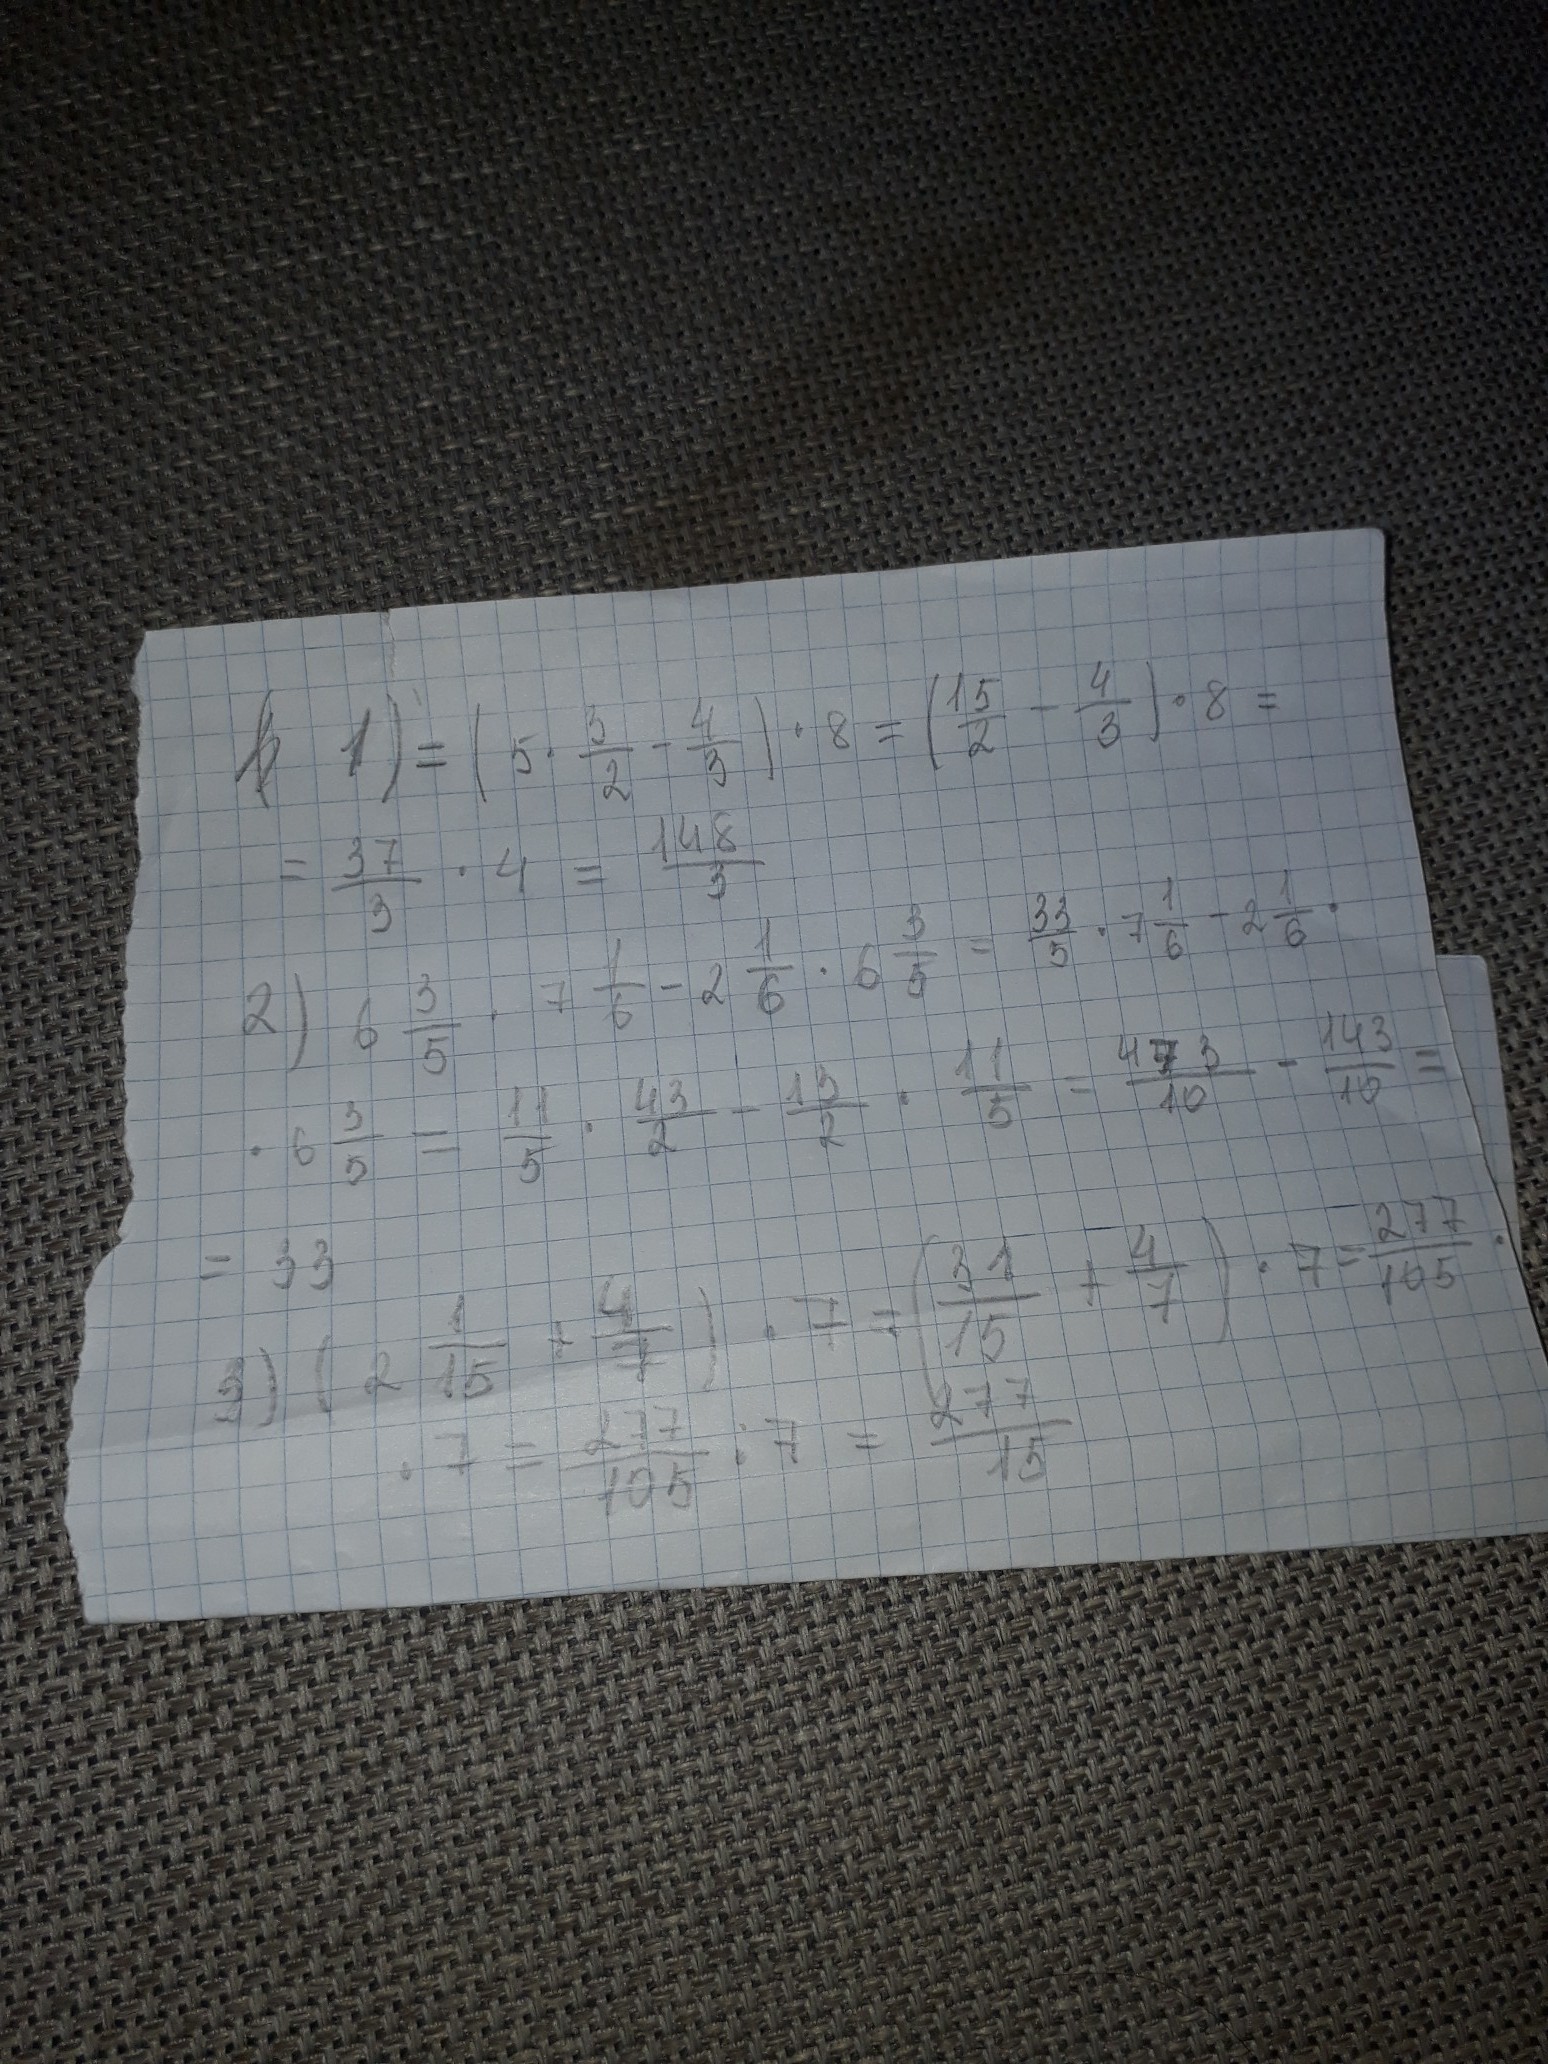 1) = (5 · 3/2 - 4/3) · 8 = (15/2 - 4/3) · 8 =
= 37/3 · 4 = 148/3
2) 6 3/5 · 7 1/6 - 2 1/6 · 6 3/5 = 33/5 · 7 1/6 - 2 1/6 ·
· 6 3/5 = 11/5 · 43/2 - 13/2 · 11/5 = 473/10 - 143/10 =
= 33
3) (2 1/15 + 4/7) · 7 = (31/15 + 4/7) · 7 = 277/105 ·
· 7 = 277/105 : 7 = 277/15